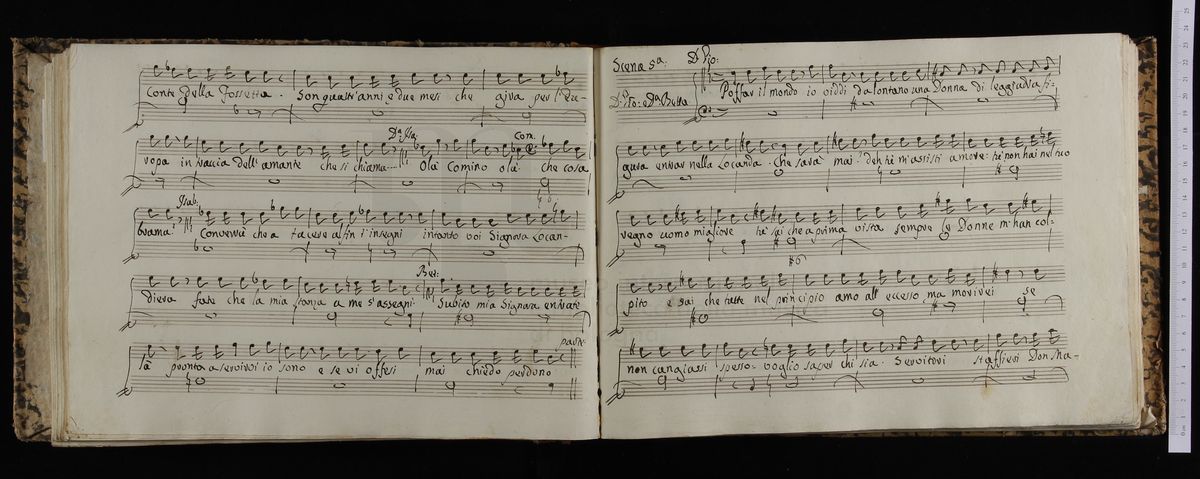 Conte Della Fossetta. Son quatt'anni, e due mesi che giva per l'Eu-
Dª Isa: Con.
ropa in traccia dell'amante che si chiama... Olà Comino olà. che cosa
Isab:
brama? Converrà che a tacere alfin t'insegni intanto voi Signora Locan-
Bet:
diera fate che la mia stanza a me s'assegni. Subito mia Signora entrate
parte
là pronta a servirvi io sono e se vi offesi mai chiedo perdono
Scena 5ª: Dⁿ Pro:
Dⁿ Pro: e Dª Betta Poffar il mondo io viddi da lontano una Donna di leggiadra fi-
gura entrar nella Locanda. che sarà mai? deh tù m'assisti amore: tù non hai nel tuo
regno uomo migliore tù sai che a prima vista sempre le Donne m'han col-
pito e sai che tutte nel principio amo all'eccesso, ma morirei se
non cangiassi spesso: voglio saper chi sia. Servitori staffieri Don Ma-